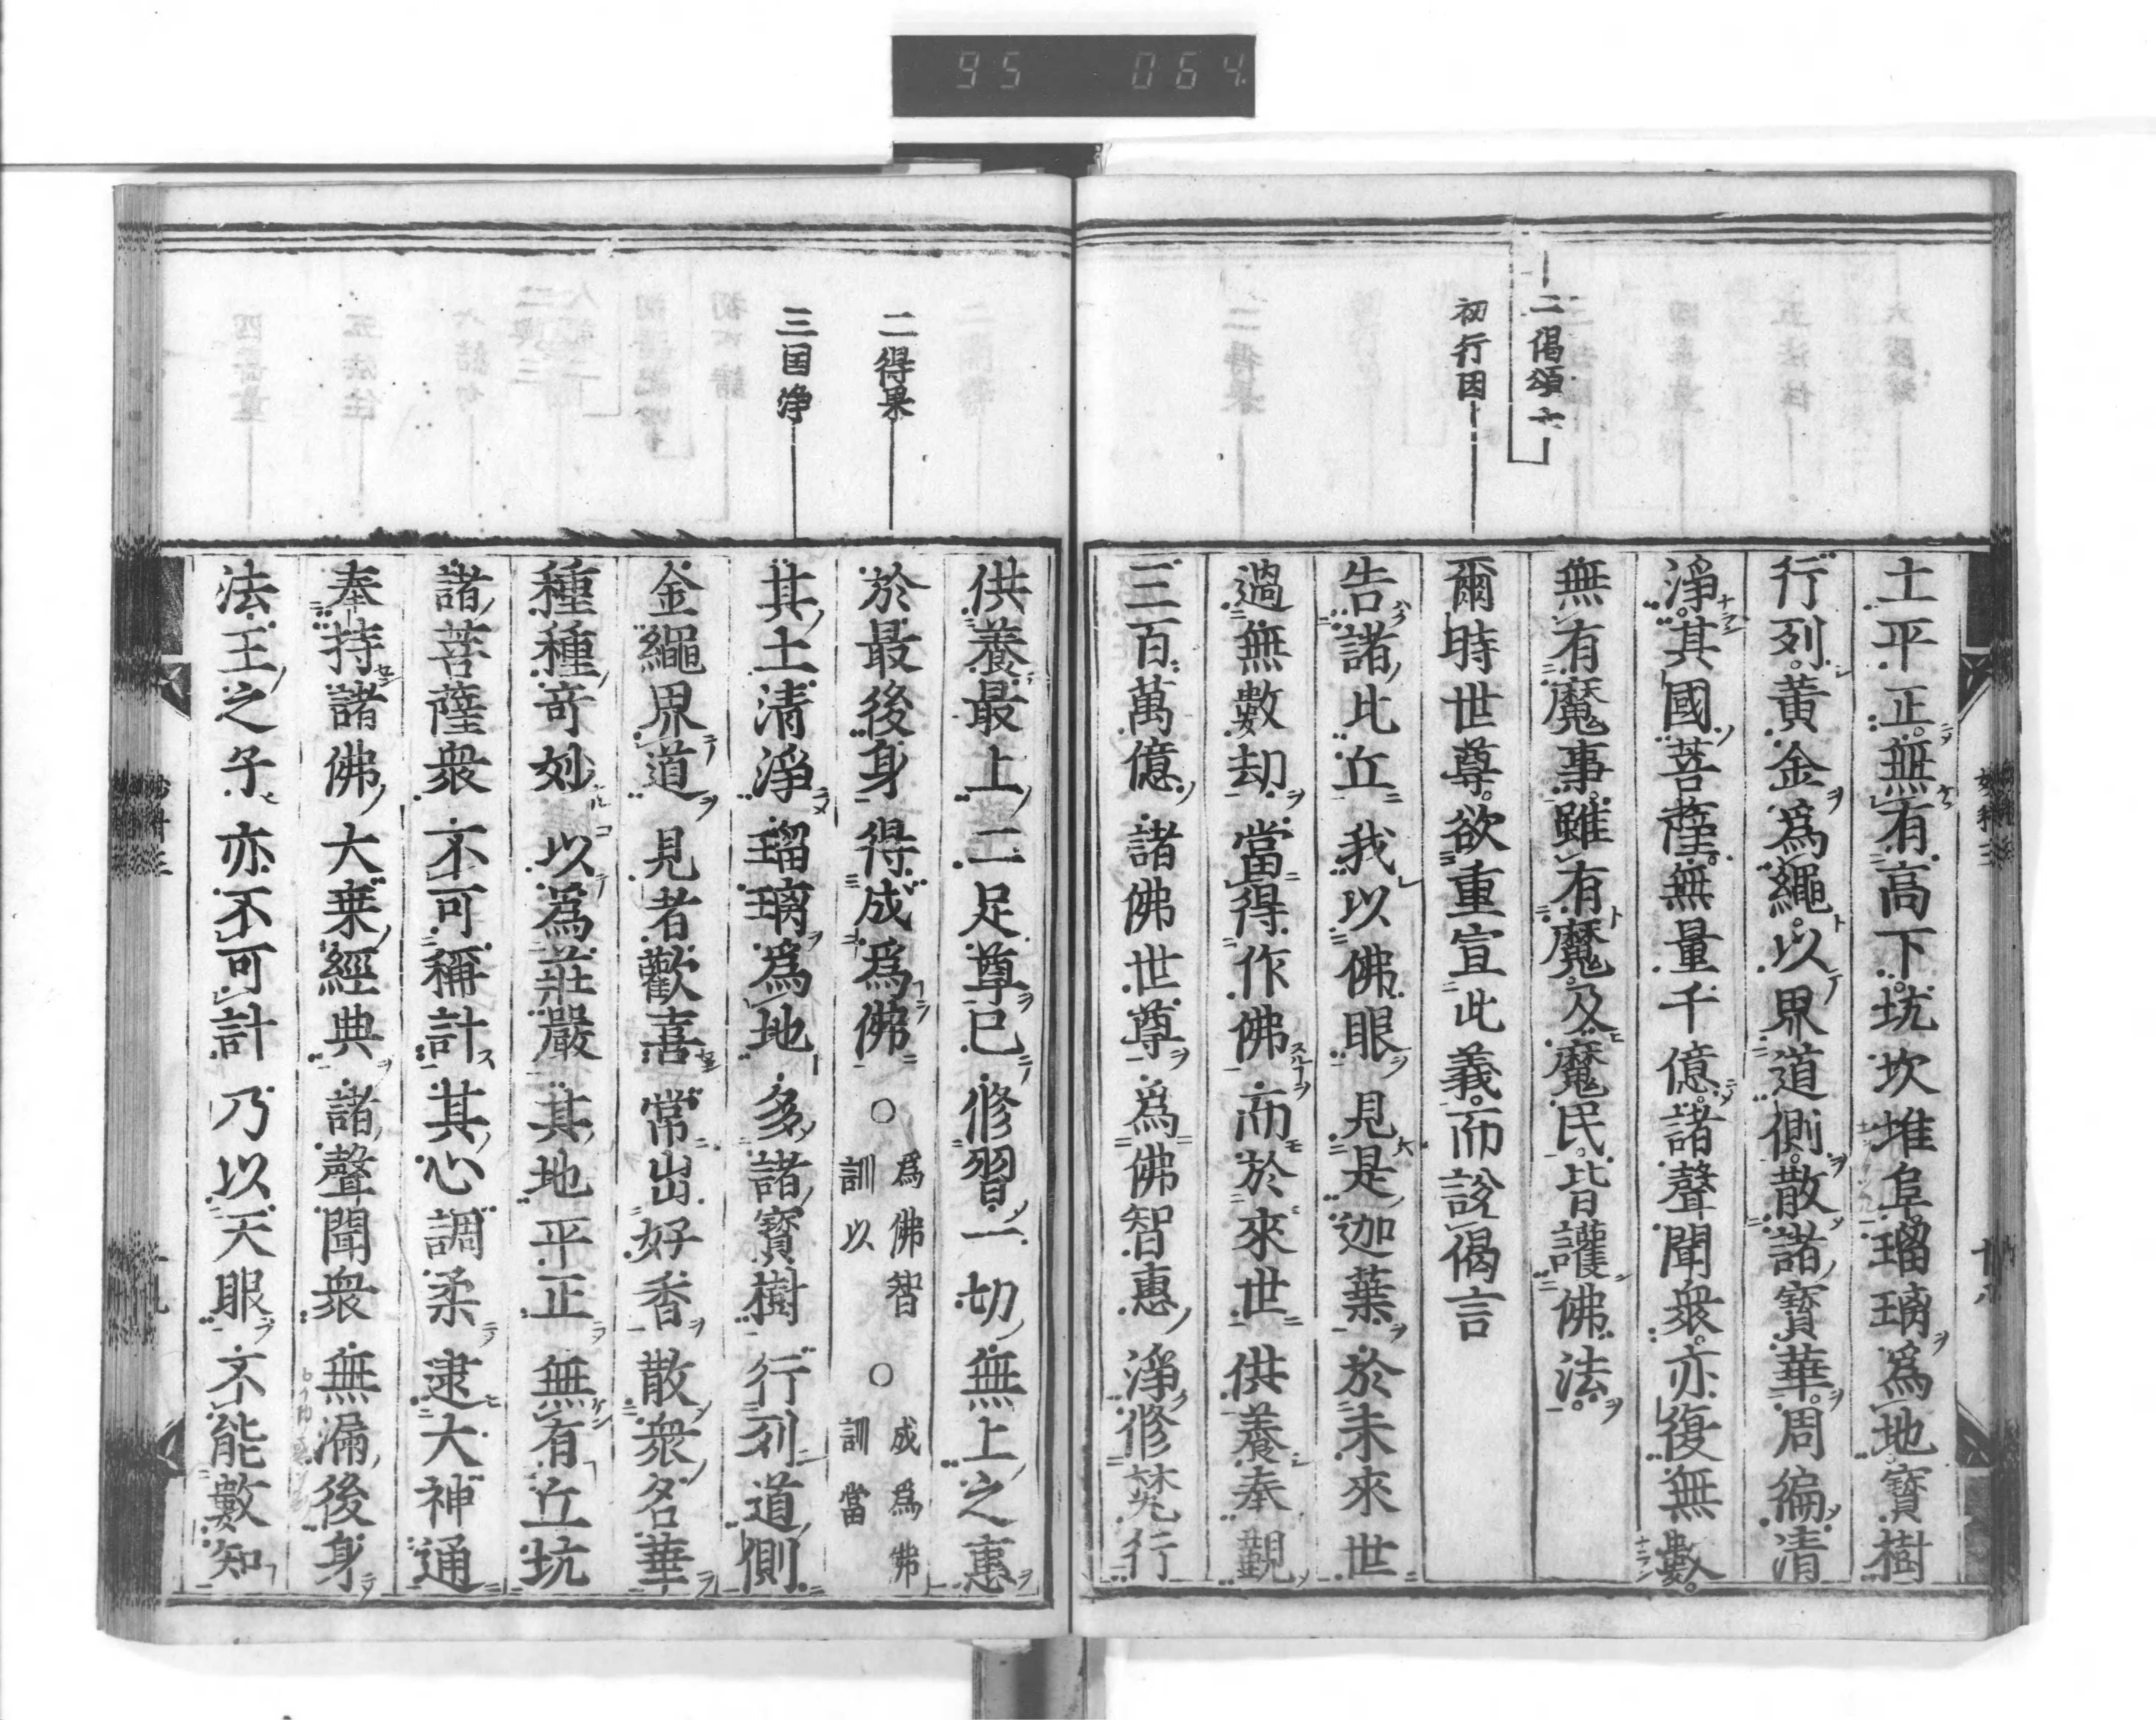 95 064
二偈頌六
初行因
土平正無有高下坑坎堆阜瑠璃爲地寶樹
行列黃金爲繩以界道側散諸寶華周徧清
淨其國菩薩無量千億諸聲聞衆亦復無數
無有魔事雖有魔及魔民皆護佛法
爾時世尊欲重宣此義而說偈言
告諸比丘我以佛眼見是迦葉於未來世
過無數劫當得作佛而於來世供養奉覲
三百萬億諸佛世尊爲佛智惠淨修梵行
二得果
三国淨
供養最上二足尊已修習一切無上之惠
於最後身得成爲佛○爲佛智訓以○成爲佛訓當
其土清淨瑠璃爲地多諸寶樹行列道側
金繩界道見者歡喜常出好香散衆名華
種種奇妙以爲莊嚴其地平正無有丘坑
諸菩薩衆不可稱計其心調柔逮大神通
奉持諸佛大乗經典諸聲聞衆無漏後身
法王之子亦不可計乃以天眼不能數知